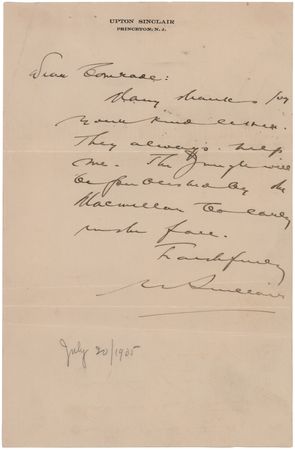 UPTON SINCLAIR
PRINCETON, N. J.
Dear Comrade:
Many thanks for
your kind letter.
They always help
me. The Jungle will
be published by the
Macmillan Co early
in the fall.
Faithfully
U Sinclair
July 20/1905